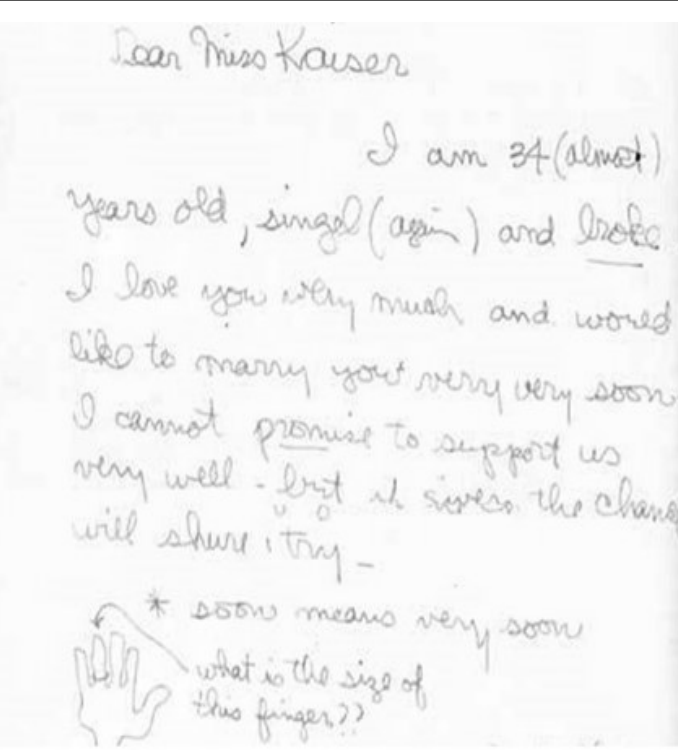 Dear Miss Kaiser
I am 34 (almost)
years old, singel (again) and broke
I love you very much and would
like to marry you very very soon
I cannot promise to support us
very well - but if given the chance
will shure try -
* soon means very soon
what is the size of
this finger??